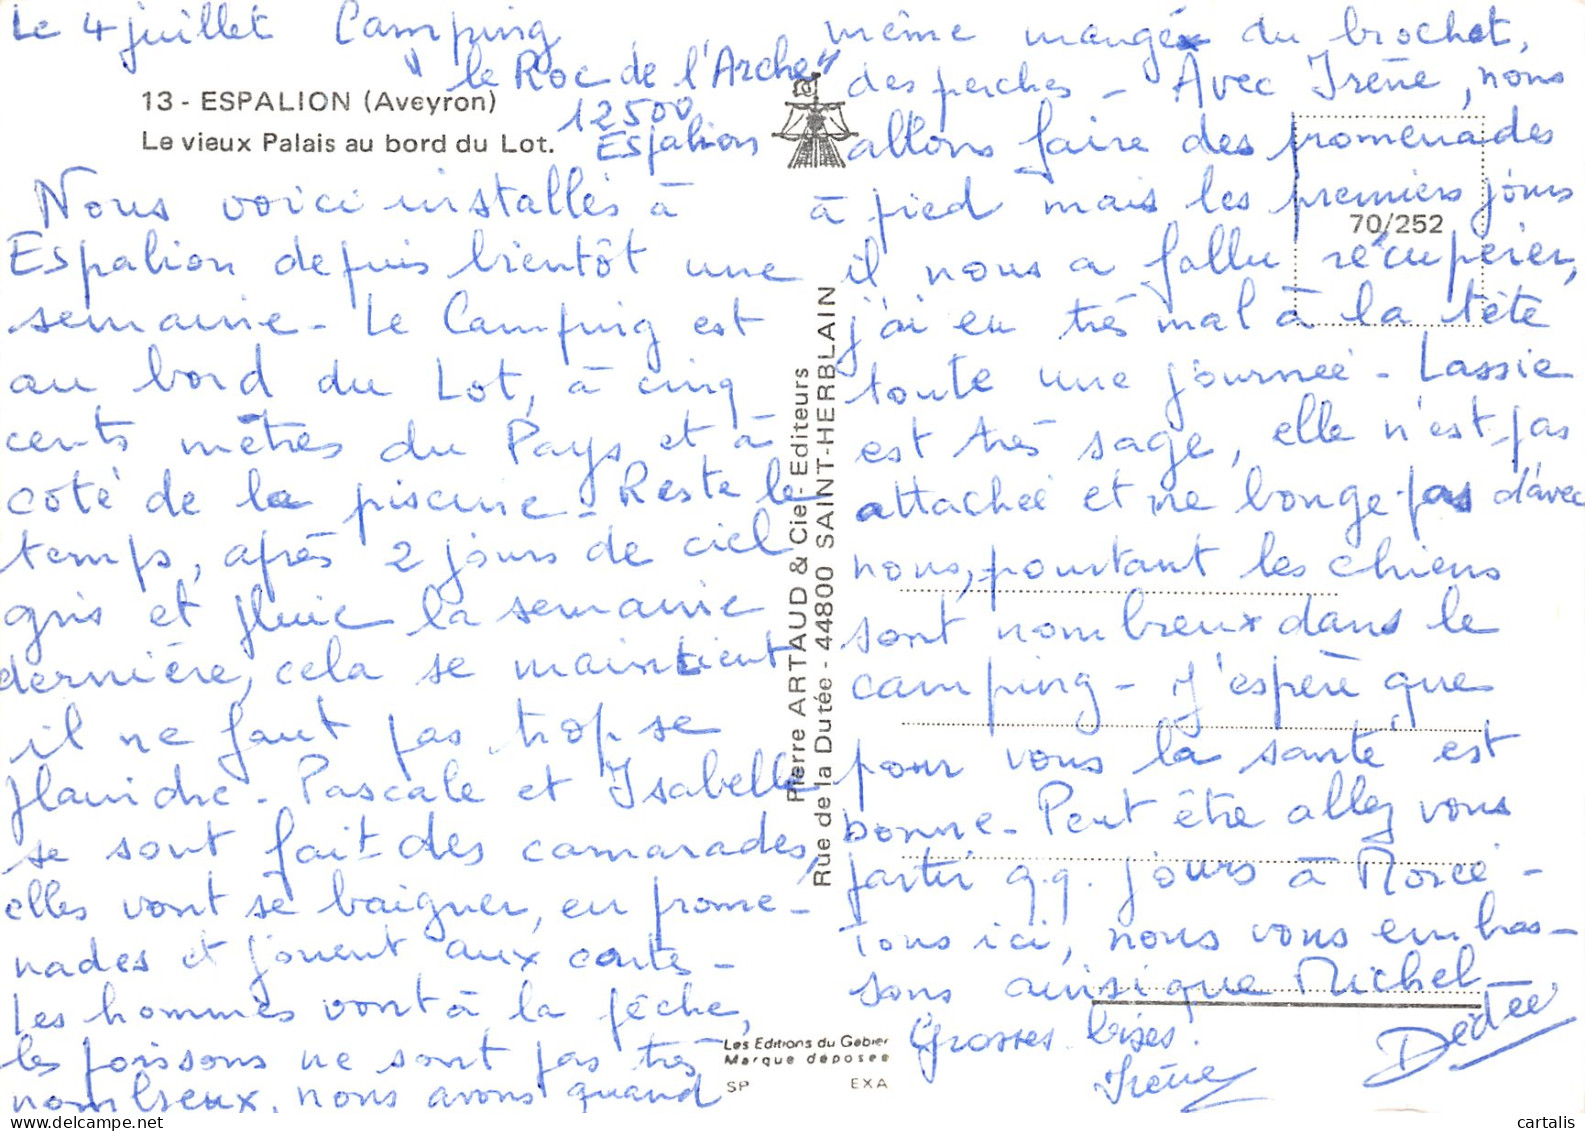 Le 4 juillet Camping
"le Roc de l'Arche"
12500
Espalion
13 - ESPALION (Aveyron)
Le vieux Palais au bord du Lot.
Nous voici installés à
Espalion depuis bientôt une
semaine - Le Camping est
au bord du Lot, à cinq
cents mètres du Pays et à
coté de la piscine - Reste le
temps, après 2 jours de ciel
gris et pluie la semaine
dernière, cela se maintient
il ne faut pas trop se
plaindre - Pascale et Isabelle
se sont fait des camarades,
elles vont se baigner, en prome-
nades et jouent aux cartes -
Les hommes vont à la pêche,
les poissons ne sont pas très
nombreux, nous avons quand
même mangé du brochet,
des perches - Avec Irène, nous
allons faire des promenades
à pied mais les premiers jours
il nous a fallu récupérer,
j'ai eu très mal à la tête
toute une journée - Lassie
est très sage, elle n'est pas
attachée et ne bouge pas d'avec
nous, pourtant les chiens
sont nombreux dans le
camping - J'espère que
pour vous la santé est
bonne - Peut être allez vous
partir q.q. jours à
Tous ici, nous vous embras-
sons ainsi que Michel
Grosses bises.
Irène
Dédée
70/252
Pierre ARTAUD & Cie - Editeurs
Rue de la Dutée - 44800 SAINT-HERBLAIN
Les Editions du Gabier
Marque déposée
SP EXA
cartalis